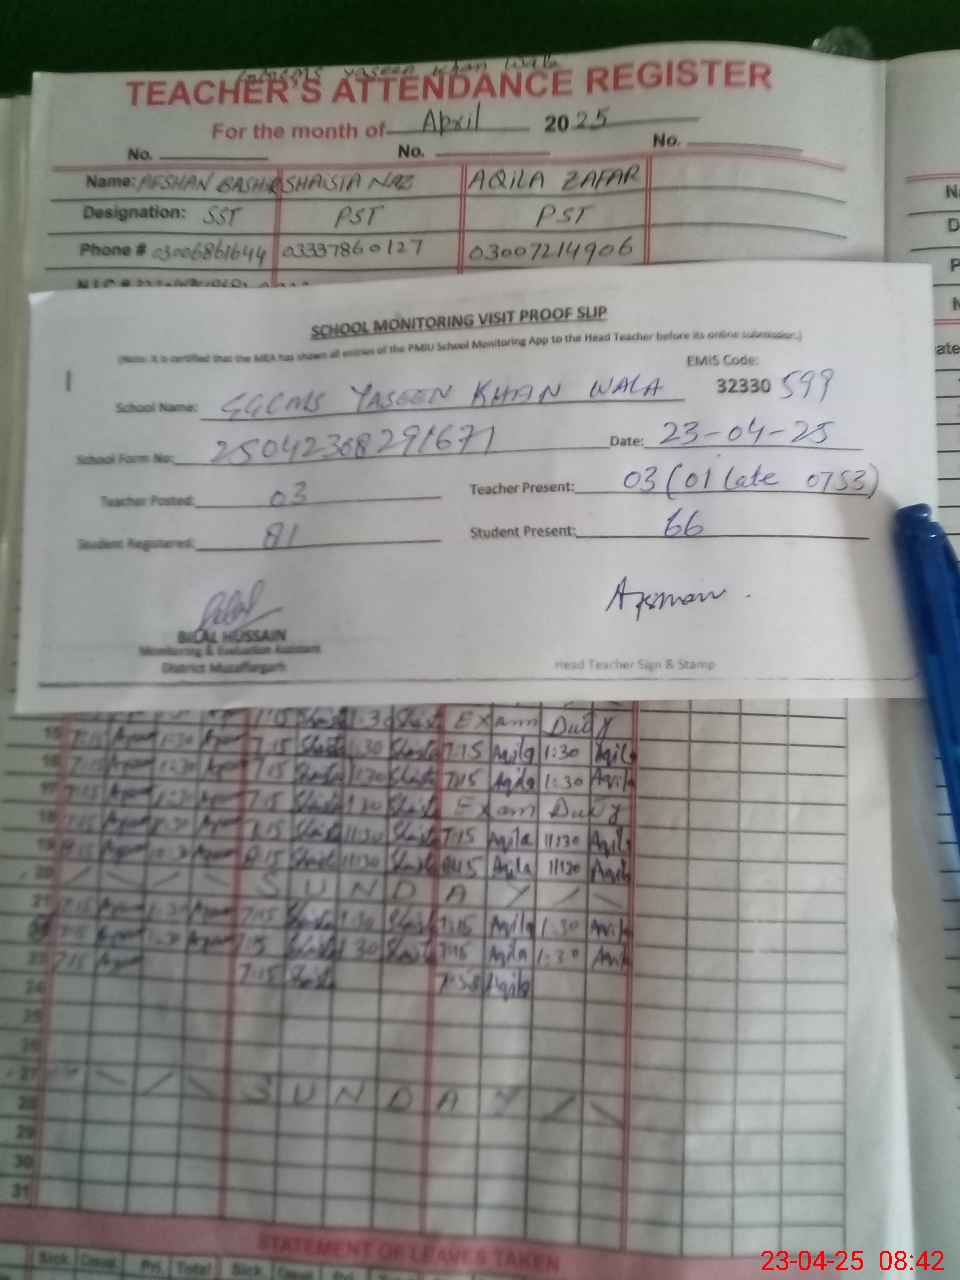 GGCMS Yaseen Khan Wala
TEACHER'S ATTENDANCE REGISTER
For the month of April 2025
No. No. No.
Name: AFSHAN BASHIR SHAISTA NAZ AQILA ZAFAR
Designation: SST PST PST
Phone # 03006861644 03337860127 03007214906
N.I.C #
SCHOOL MONITORING VISIT PROOF SLIP
(Note: It is certified that the MEA has shown all entries of the PMIU School Monitoring App to the Head Teacher before its online submission.)
EMIS Code:
School Name: GGCMS YASEEN KHAN WALA 32330 599
School Form No: 25042308291671 Date: 23-04-25
Teacher Posted: 03 Teacher Present: 03 (01 Late 0753)
Student Registered: 81 Student Present: 66
BILAL HUSSAIN
Monitoring & Evaluation Assistant
District Muzaffargarh
Head Teacher Sign & Stamp
1:30 Exam Duty
15 7:15 1:30 7:15 1:30 7:15 Aqila 1:30 Aqila
16 7:15 1:30 7:15 1:30 7:15 Aqila 1:30 Aqila
17 7:15 1:30 7:15 1:30 Exam Duty
18 7:15 11:30 7:15 Aqila 11:30 Aqila
19 8:15 8:15 11:30 Aqila 11:30 Aqila
20 SUNDAY
21 7:15 1:30 7:15 1:30 7:15 Aqila 1:30 Aqila
22 7:15 1:30 7:15 1:30 7:15 Aqila 1:30 Aqila
23 7:15 7:15 7:53 Aqila
24
25
26
27 SUNDAY
28
29
30
31
STATEMENT OF LEAVES TAKEN
Sick Casual Pri. Total Sick Casual Pri.
23-04-25 08:42